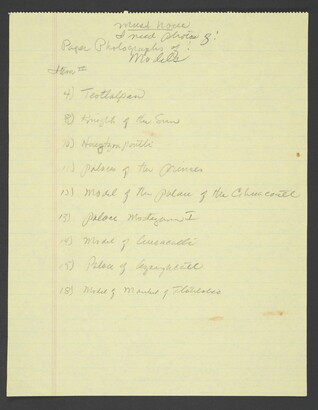 Must have
I need photos of:
Paper Photographs of:
Models
Item #
4) Teotlalpan
8) Knight of the Suns
9)
11) Palace of the princes
12) Model of the palace of the
13) Palace Moctezuma I
14) Model of
15) Palace of
18) Model of Market of Tlatelolco